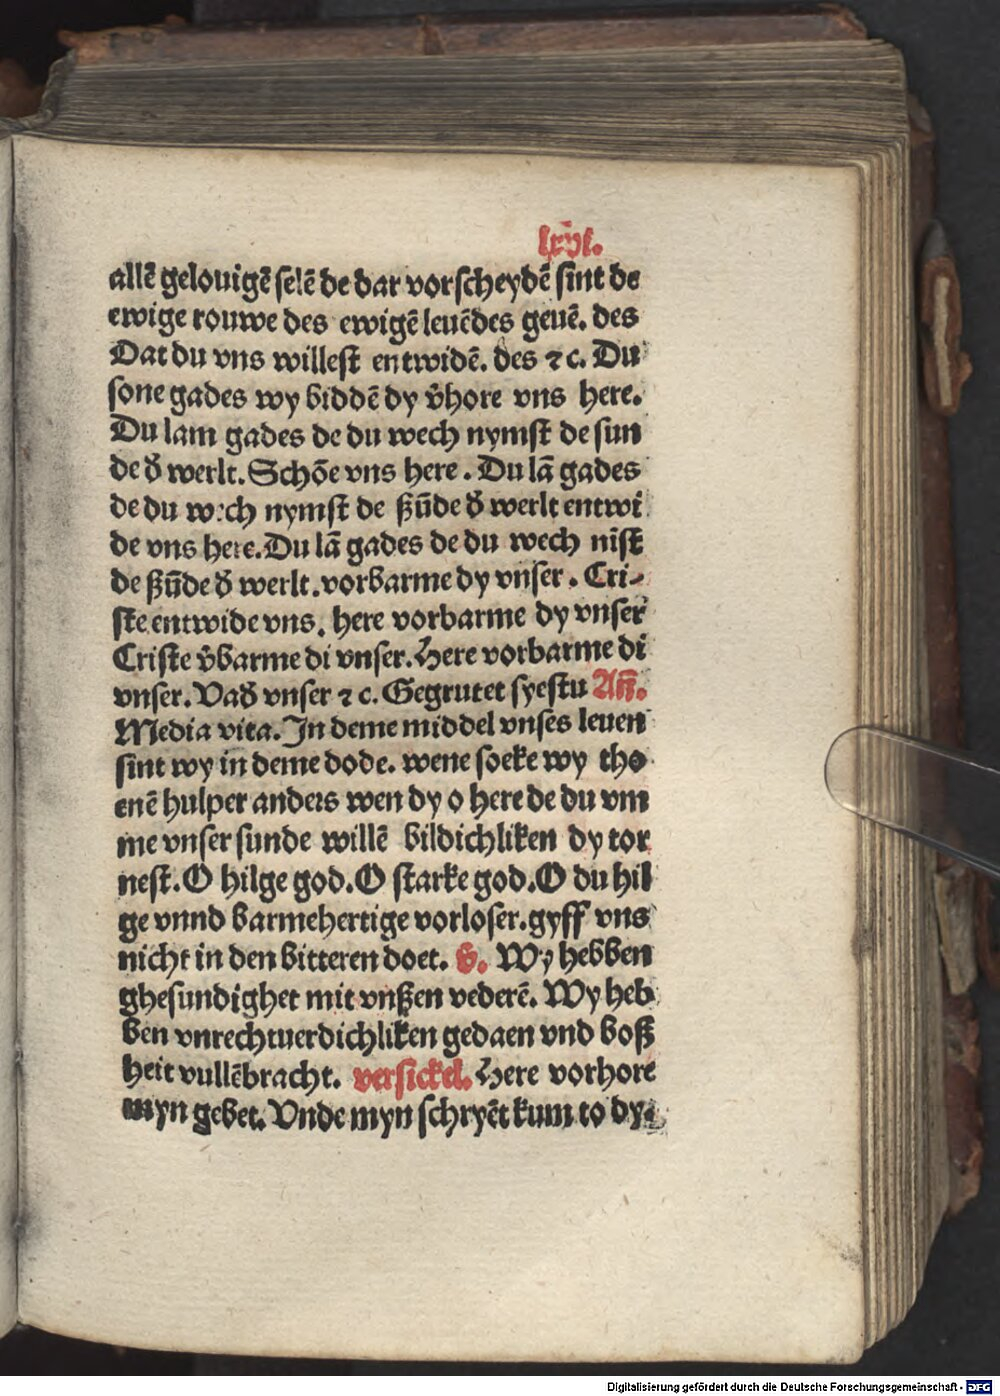 lxvi.
allē gelouigē selē de dar vorscheydē sint de
ewige rouwe des ewigē leuēdes geuē. des
Dat du vns willest entwidē. des ⁊ c. Du
sone gades wy biddē dy v̄hore vns here.
Du lam gades de du wech nymst de sun
de d̄ werlt. Schōe vns here. Du lā gades
de du wech nymst de ßūde d̄ werlt entwi
de vns here. Du lā gades de du wech nīst
de ßūde d̄ werlt. vorbarme dy vnser. Cri-
ste entwide vns. here vorbarme dy vnser
Criste v̄barme di vnser. Here vorbarme di
vnser. Vad̄ vnser ⁊ c. Gegrutet syestu An̄.
Media vita. In deme middel vnses leuen
sint wy in deme dode. wene soeke wy tho
enē hulper anders wen dy o here de du vm
me vnser sunde willē bildichliken dy tor
nest. O hilge god. O starke god. O du hil
ge vnnd barmehertige vorloser. gyff vns
nicht in den bitteren doet. v̄. Wy hebben
ghesundighet mit vnßen vederē. Wy heb
ben vnrechtuerdichliken gedaen vnd boß
heit vullēbracht. versickel. Here vorhore
myn gebet. Vnde myn schryēt kum to dy.
Digitalisierung gefördert durch die Deutsche Forschungsgemeinschaft - DFG